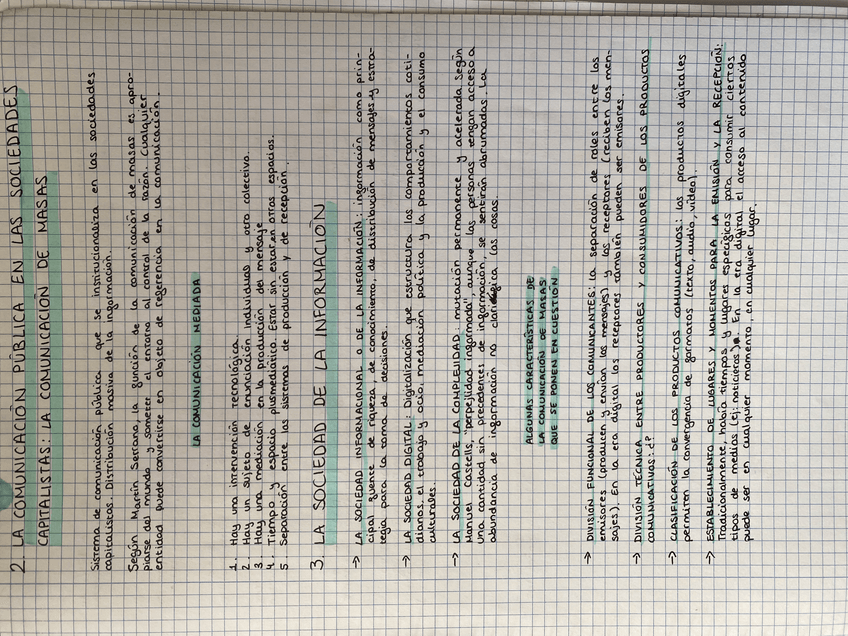 2. LA COMUNICACIÓN PÚBLICA EN LAS SOCIEDADES
CAPITALISTAS: LA COMUNICACIÓN DE MASAS
Sistema de comunicación pública que se institucionaliza en las sociedades
capitalistas. Distribución masiva de la información.
Según Martín Serrano, la función de la comunicación de masas es apro-
piarse del mundo y someter el entorno al control de la razón. Cualquier
entidad puede convertirse en objeto de referencia en la comunicación.
LA COMUNICACIÓN MEDIADA
1. Hay una intervención tecnológica.
2. Hay un sujeto de enunciación individual y otro colectivo.
3 Hay una mediación en la producción del mensaje
4. Tiempo y espacio plusmediático. Estar sin estar en otros espacios.
5. Separación entre los sistemas de producción y de recepción.
3. LA SOCIEDAD DE LA INFORMACIÓN
→ LA SOCIEDAD INFORMACIONAL O DE LA INFORMACIÓN: información como prin-
cipal fuente de riqueza, de conocimiento, de distribución de mensajes y estra-
tegia para la toma de decisiones.
→ LA SOCIEDAD DIGITAL: Digitalización que estructura los comportamientos coti-
dianos, el trabajo y ocio, mediación política y la producción y el consumo
culturales.
→ LA SOCIEDAD DE LA COMPLEJIDAD: mutación permanente y acelerada. Según
Manuel Castells, "perpejlidad informada", aunque las personas tengan acceso a
una cantidad sin precedentes de información, se sentirán abrumadas. La
abundancia de información no clarifica las cosas.
ALGUNAS CARACTERÍSTICAS DE
LA COMUNICACIÓN DE MASAS
QUE SE PONEN EN CUESTIÓN
→ DIVISIÓN FUNCIONAL DE LOS COMUNICANTES: la separación de roles entre los
emisores (producen y envían los mensajes) y los receptores (reciben los men-
sajes). En la era digital los receptores también pueden ser emisores.
→ DIVISIÓN TÉCNICA ENTRE PRODUCTORES Y CONSUMIDORES DE LOS PRODUCTOS
COMUNICATIVOS: ¿?
→ CLASIFICACIÓN DE LOS PRODUCTOS COMUNICATIVOS: los productos digitales
permiten la convergencia de formatos (texto, audio, video).
→ ESTABLECIMIENTO DE LUGARES Y MOMENTOS PARA LA EMISIÓN Y LA RECEPCIÓN:
Tradicionalmente, había tiempos y lugares específicos para consumir ciertos
tipos de medios (ej: noticieros). En la era digital el acceso al contenido
puede ser en cualquier momento, en cualquier lugar.